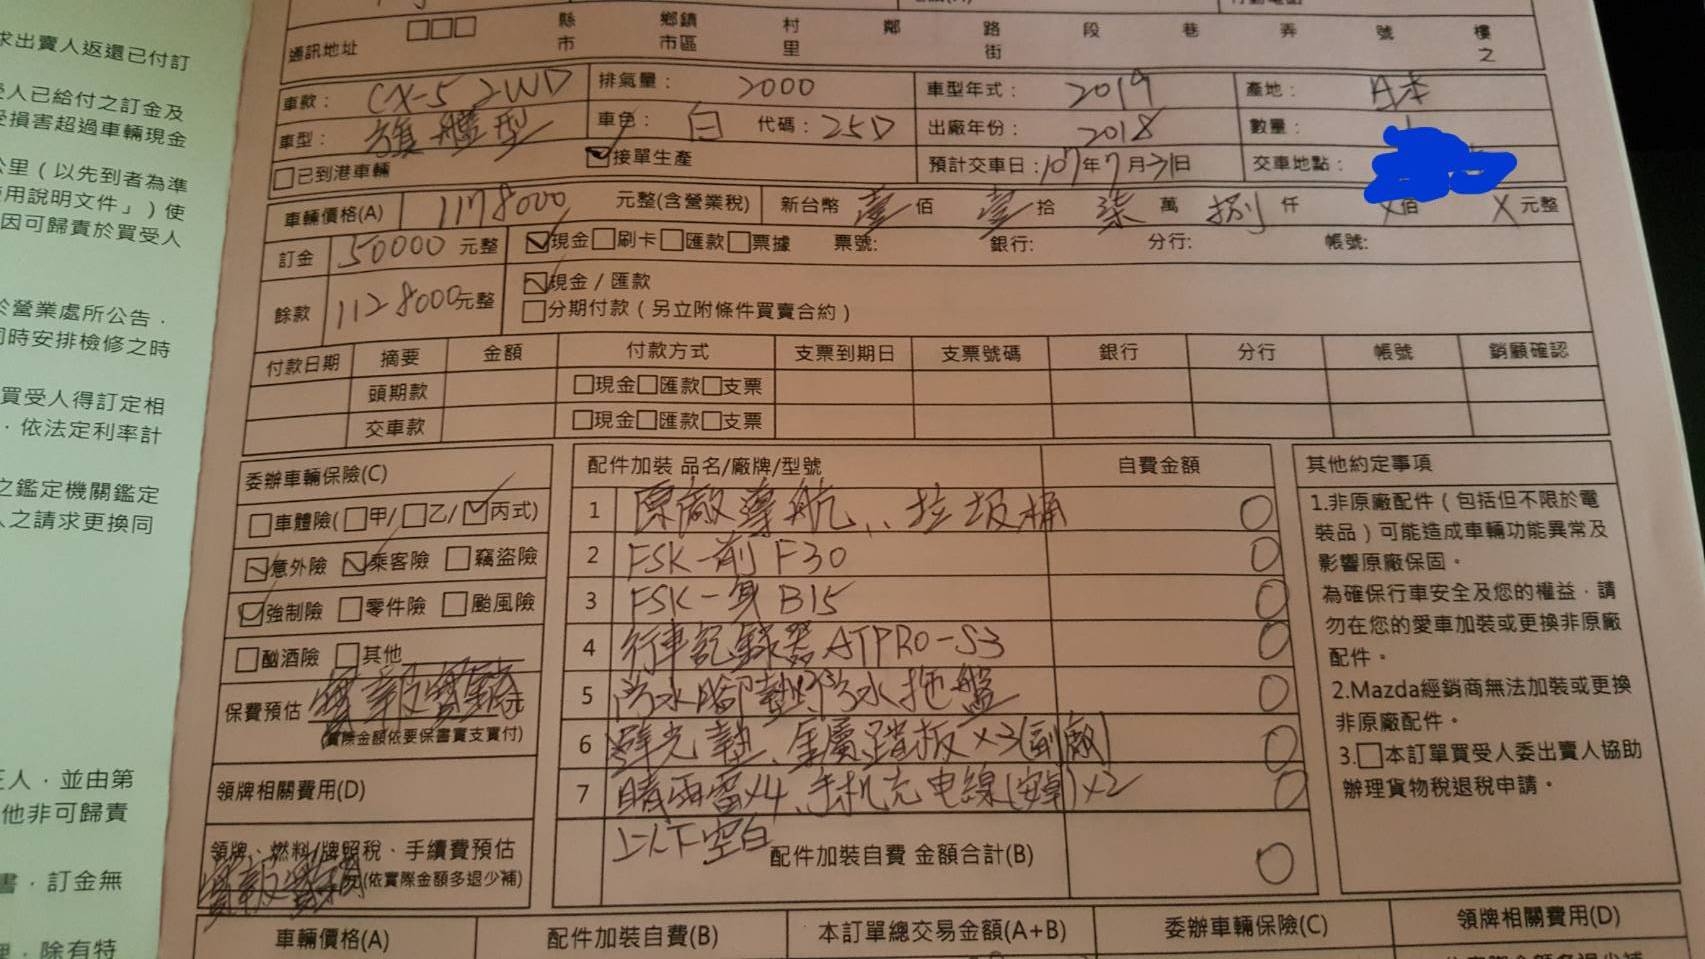 求出賣人返還已付訂
受人已給付之訂金及
受損害超過車輛現金
公里（以先到者為準
使用說明文件」）使
因可歸責於買受人
於營業處所公告．
同時安排檢修之時
買受人得訂定相
．依法定利率計
之鑑定機關鑑定
人之請求更換同
正人．並由第
他非可歸責
書．訂金無
理．除有特
通訊地址 □□□ 縣市 鄉鎮市區 村里 鄰 路街 段 巷 弄 號 樓之
車款： CX-5 2WD 排氣量： 2000 車型年式： 2019 產地： 日本
車型： 旗艦型 車色： 白 代碼： 25D 出廠年份： 2018 數量：
□已到港車輛 ☑接單生產 預計交車日：107年7月31日 交車地點：
車輛價格(A) 1178000 元整(含營業稅) 新台幣 壹佰 壹拾 柒萬 捌仟 X佰 X元整
訂金 50000 元整 ☑現金□刷卡□匯款□票據 票號: 銀行: 分行: 帳號:
餘款 1128000元整 ☑現金 / 匯款
□分期付款（另立附條件買賣合約）
付款日期 摘要 金額 付款方式 支票到期日 支票號碼 銀行 分行 帳號 銷顧確認
頭期款 □現金□匯款□支票
交車款 □現金□匯款□支票
委辦車輛保險(C)
□車體險(□甲/□乙/☑丙式)
☑意外險 ☑乘客險 □竊盜險
☑強制險 □零件險 □颱風險
□酗酒險 □其他
保費預估 元
(實際金額依要保書實支實付)
領牌相關費用(D)
領牌、燃料/牌照稅、手續費預估
元(依實際金額多退少補)
配件加裝 品名/廠牌/型號 自費金額
1 原廠導航、垃圾桶 0
2 FSK-前 F30 0
3 FSK-身 B15 0
4 行車記錄器 ATPRO-S3 0
5 防水腳墊、防水拖盤 0
6 避光墊、金屬踏板×3(副廠) 0
7 晴雨窗×4、手机充電線(安卓)×2 0
以下空白 配件加裝自費 金額合計(B) 0
其他約定事項
1.非原廠配件（包括但不限於電
裝品）可能造成車輛功能異常及
影響原廠保固。
為確保行車安全及您的權益．請
勿在您的愛車加裝或更換非原廠
配件。
2.Mazda經銷商無法加裝或更換
非原廠配件。
3.□本訂單買受人委出賣人協助
辦理貨物稅退稅申請。
車輛價格(A) 配件加裝自費(B) 本訂單總交易金額(A+B) 委辦車輛保險(C) 領牌相關費用(D)